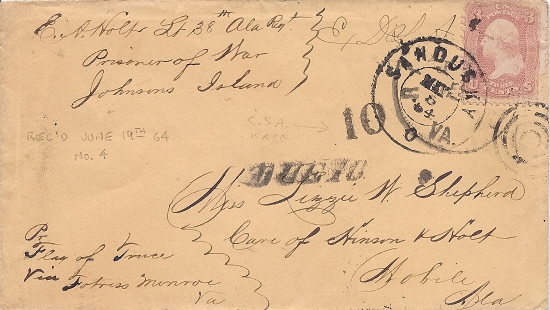 E. A. Holt Lt 38th Ala Regt.
Prisoner of War
Johnsons Island
REC'D JUNE 19TH 64
NO. 4
C.S.A.
SANDUSKY
O
VA.
10
DUE 10
Miss Lizzie W. Shepherd
Care of Hinson & Holt
Mobile
Ala
Pr
Flag of Truce
Via Fotress Monroe
Va